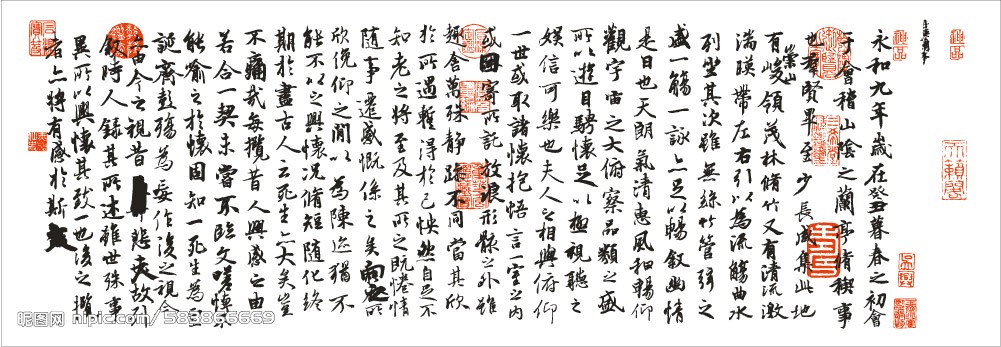 永和九年歲在癸丑暮春之初會
于會稽山陰之蘭亭脩禊事
也群賢畢至少長咸集此地
有崇山峻領茂林脩竹又有清流激
湍暎帶左右引以為流觴曲水
列坐其次雖無絲竹管弦之
盛一觴一詠亦足以暢敘幽情
是日也天朗氣清惠風和暢仰
觀宇宙之大俯察品類之盛
所以遊目騁懷足以極視聽之
娛信可樂也夫人之相與俯仰
一世或取諸懷抱悟言一室之內
或因寄所託放浪形骸之外雖
趣舍萬殊靜躁不同當其欣
於所遇蹔得於己怏然自足不
知老之將至及其所之既惓情
隨事遷感慨係之矣向之所
欣俛仰之閒以為陳迹猶不
能不以之興懷況脩短隨化終
期於盡古人云死生亦大矣豈
不痛哉每攬昔人興感之由
若合一契未嘗不臨文嗟悼不
能喻之於懷固知一死生為虛
誕齊彭殤為妄作後之視今
亦由今之視昔悲夫故列
敘時人錄其所述雖世殊事
異所以興懷其致一也後之攬
者亦將有感於斯文
昵图网 nipic.com/583866669